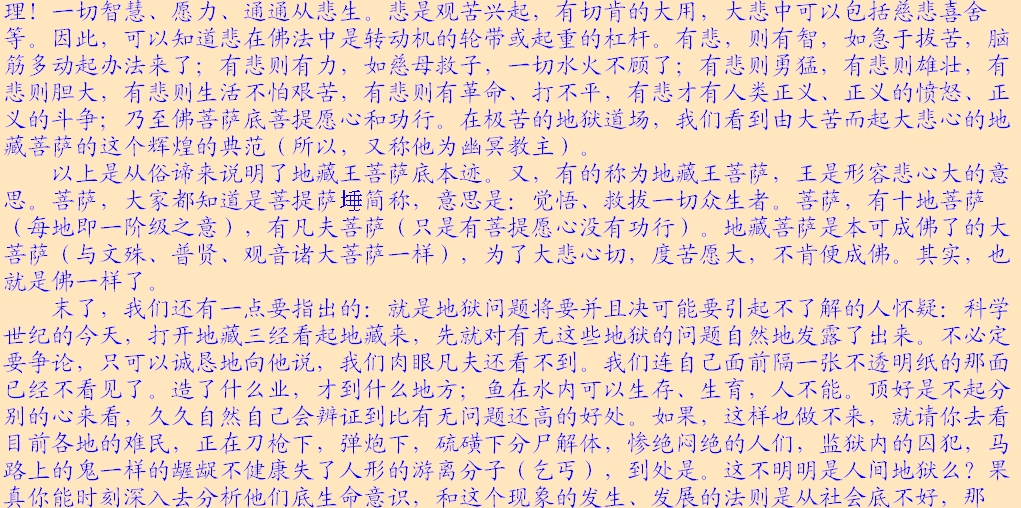 理！一切智慧、愿力、通通从悲生。悲是观苦兴起，有切肯的大用，大悲中可以包括慈悲喜舍
等。因此，可以知道悲在佛法中是转动机的轮带或起重的杠杆。有悲，则有智，如急于拔苦，脑
筋多动起办法来了；有悲则有力，如慈母救子，一切水火不顾了；有悲则勇猛，有悲则雄壮，有
悲则胆大，有悲则生活不怕艰苦，有悲则有革命、打不平，有悲才有人类正义、正义的愤怒、正
义的斗争；乃至佛菩萨底菩提愿心和功行。在极苦的地狱道场，我们看到由大苦而起大悲心的地
藏菩萨的这个辉煌的典范（所以，又称他为幽冥教主）。
以上是从俗谛来说明了地藏王菩萨底本迹。又，有的称为地藏王菩萨，王是形容悲心大的意
思。菩萨，大家都知道是菩提萨埵简称，意思是：觉悟、救拔一切众生者。菩萨，有十地菩萨
（每地即一阶级之意），有凡夫菩萨（只是有菩提愿心没有功行）。地藏菩萨是本可成佛了的大
菩萨（与文殊、普贤、观音诸大菩萨一样），为了大悲心切，度苦愿大，不肯便成佛。其实，也
就是佛一样了。
末了，我们还有一点要指出的：就是地狱问题将要并且决可能要引起不了解的人怀疑：科学
世纪的今天，打开地藏三经看起地藏来，先就对有无这些地狱的问题自然地发露了出来。不必定
要争论，只可以诚恳地向他说，我们肉眼凡夫还看不到。我们连自己面前隔一张不透明纸的那面
已经不看见了。造了什么业，才到什么地方；鱼在水内可以生存、生育，人不能。顶好是不起分
别的心来看，久久自然自己会辨证到比有无问题还高的好处。如果，这样也做不来，就请你去看
目前各地的难民，正在刀枪下，弹炮下，硫磺下分尸解体，惨绝闷绝的人们，监狱内的囚犯，马
路上的鬼一样的龌龊不健康失了人形的游离分子（乞丐），到处是。这不明明是人间地狱么？果
真你能时刻深入去分析他们底生命意识，和这个现象的发生、发展的法则是从社会底不好，那